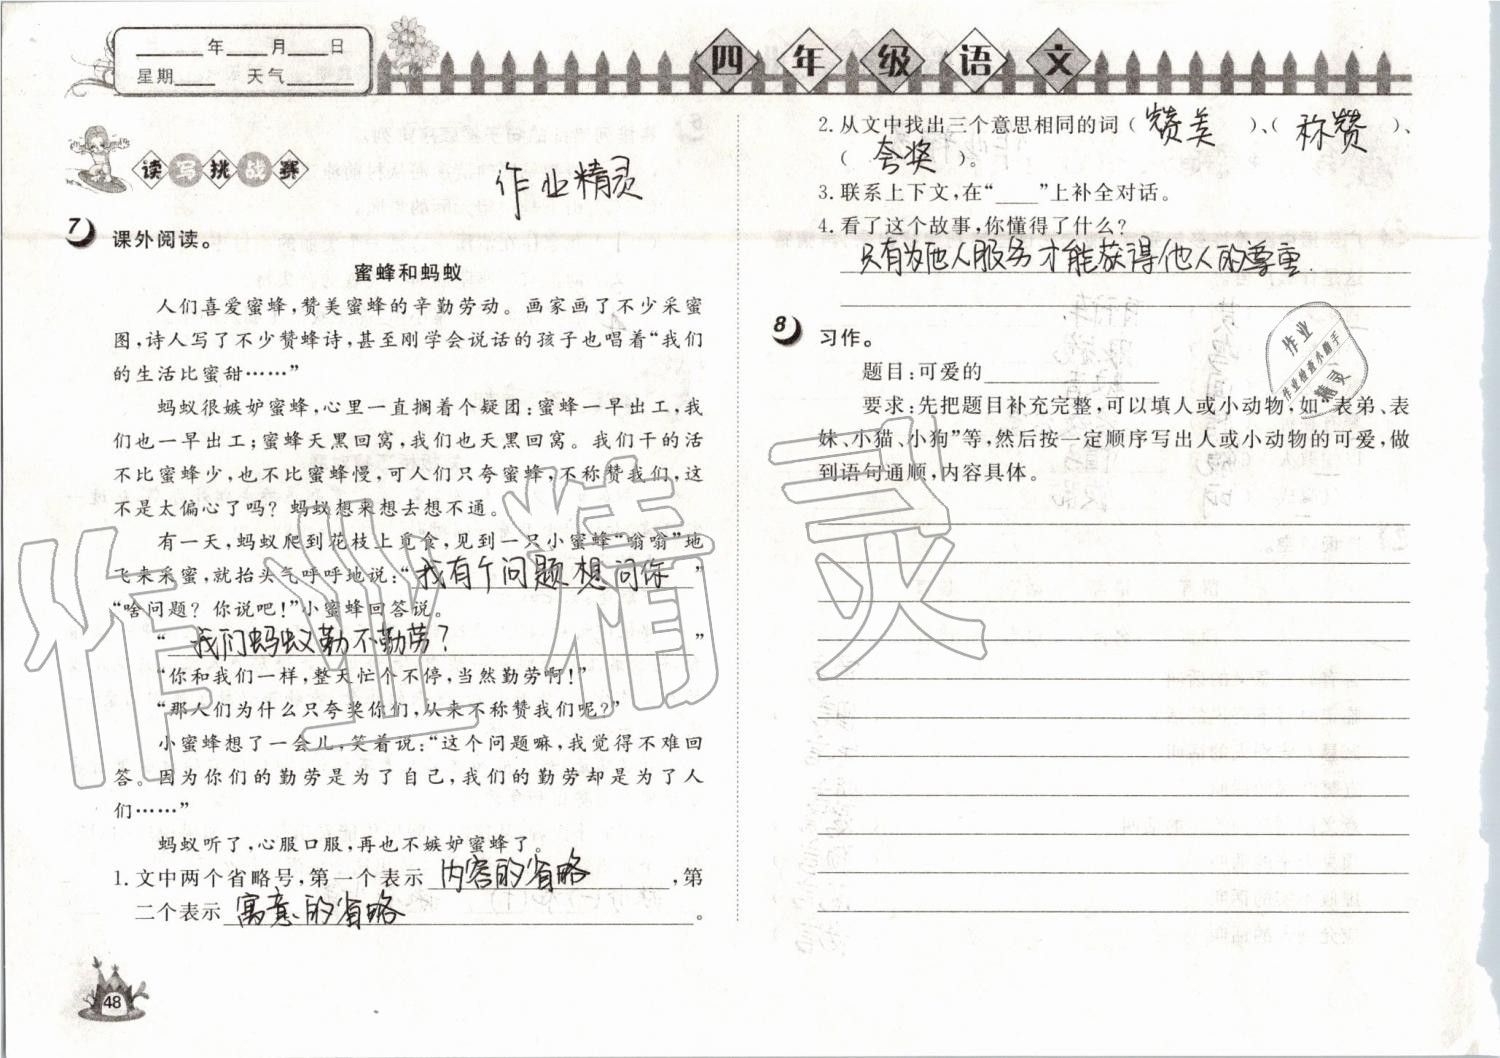 ____年____月____日
星期____ 天气____
四年级语文
读写挑战赛
作业精灵
7 课外阅读。
蜜蜂和蚂蚁
人们喜爱蜜蜂,赞美蜜蜂的辛勤劳动。画家画了不少采蜜
图,诗人写了不少赞蜂诗,甚至刚学会说话的孩子也唱着“我们
的生活比蜜甜……”
蚂蚁很嫉妒蜜蜂,心里一直搁着个疑团:蜜蜂一早出工,我
们也一早出工;蜜蜂天黑回窝,我们也天黑回窝。我们干的活
不比蜜蜂少,也不比蜜蜂慢,可人们只夸蜜蜂,不称赞我们,这
不是太偏心了吗?蚂蚁想来想去想不通。
有一天,蚂蚁爬到花枝上觅食,见到一只小蜜蜂“嗡嗡”地
飞来采蜜,就抬头气呼呼地说:“我有个问题想问你”
“啥问题?你说吧!”小蜜蜂回答说。
“我们蚂蚁勤不勤劳?”
“你和我们一样,整天忙个不停,当然勤劳啊!”
“那人们为什么只夸奖你们,从来不称赞我们呢?”
小蜜蜂想了一会儿,笑着说:“这个问题嘛,我觉得不难回
答。因为你们的勤劳是为了自己,我们的勤劳却是为了人
们……”
蚂蚁听了,心服口服,再也不嫉妒蜜蜂了。
1.文中两个省略号,第一个表示 内容的省略 ,第
二个表示 寓意的省略 。
48
2.从文中找出三个意思相同的词( 赞美 )、( 称赞 )、
( 夸奖 )。
3.联系上下文,在“____”上补全对话。
4.看了这个故事,你懂得了什么?
只有为他人服务才能获得他人的尊重.
8 习作。
题目:可爱的____________
要求:先把题目补充完整,可以填人或小动物,如“表弟、表
妹、小猫、小狗”等,然后按一定顺序写出人或小动物的可爱,做
到语句通顺,内容具体。
作业
作业检查小助手
精灵
作业精灵